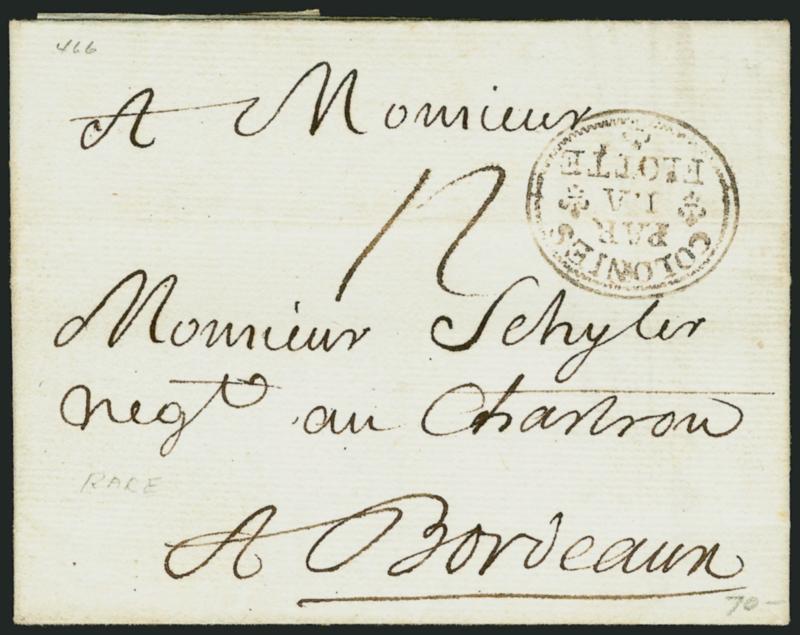 466
A Monsieur
12
COLONIES
PAR
LA
FLOTTE
Monsieur Schyler
negt au Chartron
RARE
A Bordeaux
70-